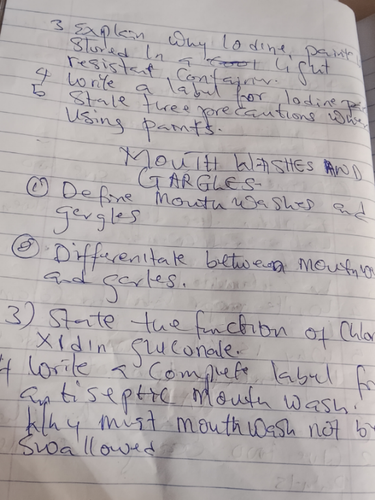 3 Explain Why Iodine paint
Stored In a light
resistant Container.
4 Write a label for Iodine
5 State three precautions When
Using paints.
MOUTH WASHES AND
GARGLES
① Define Mouth Washes and
gergles
② Differenitale between mouth
and garles.
3) State the function of Chlor
Xidin gluconate.
4 Write a Complete label for
antiseptic Mouth Wash.
Why must mouth Wash not b
Swallowed